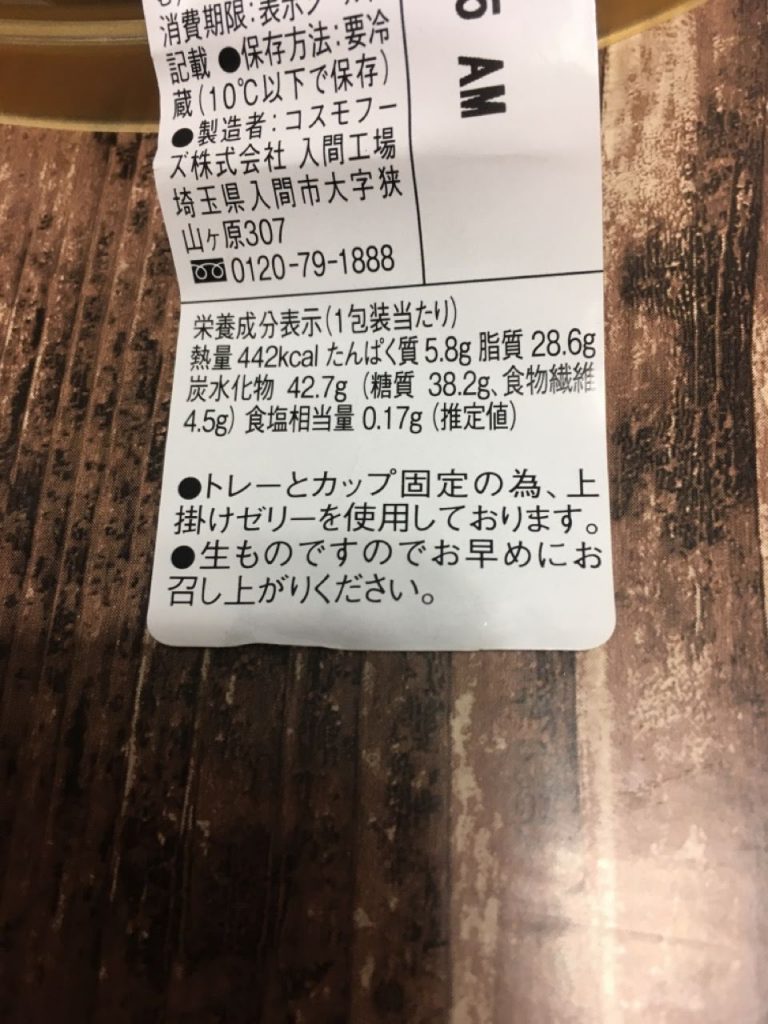 消費期限:表示シール
記載 ●保存方法:要冷
蔵(10℃以下で保存)
●製造者:コスモフー
ズ株式会社 入間工場
埼玉県入間市大字狭
山ヶ原307
0120-79-1888
AM
栄養成分表示(1包装当たり)
熱量 442kcal たんぱく質 5.8g 脂質 28.6g
炭水化物 42.7g (糖質 38.2g、食物繊維
4.5g) 食塩相当量 0.17g (推定値)
●トレーとカップ固定の為、上
掛けゼリーを使用しております。
●生ものですのでお早めにお
召し上がりください。